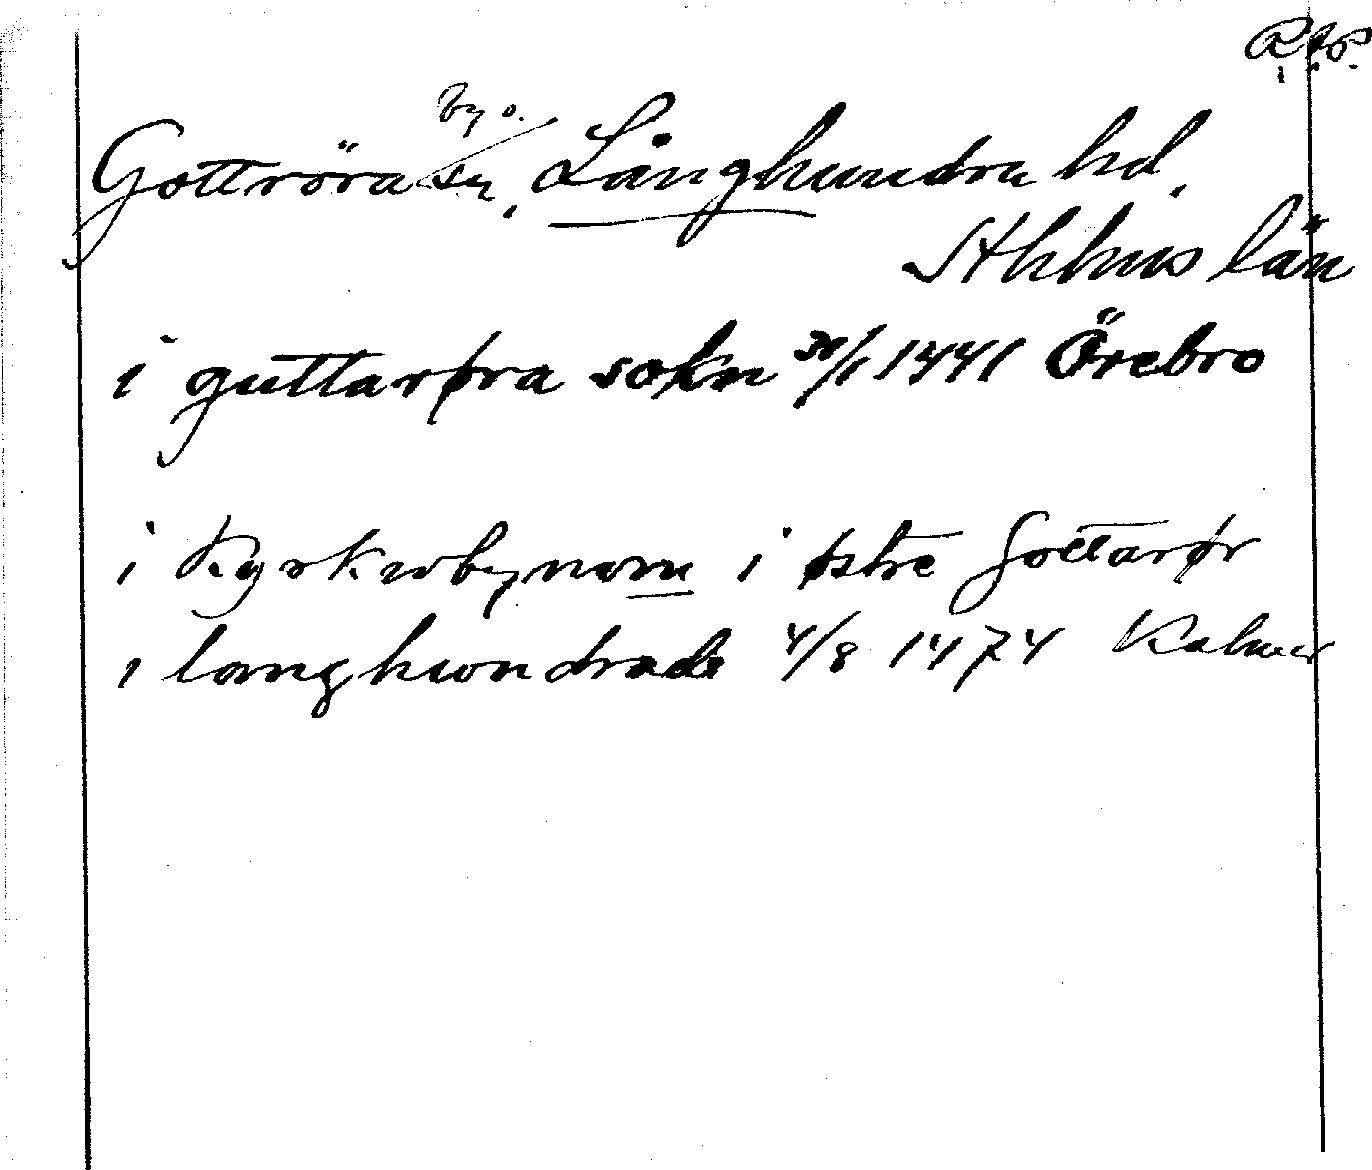 R.A.P.
by o.
Gottröra sn, Långhundra hd.
Sthlms län
i guttarøra sokn 30/1 1441 Örebro
i Kyrkwbynom i østre Gottarør
i langhwndrade 4/8 1474 Kalmar